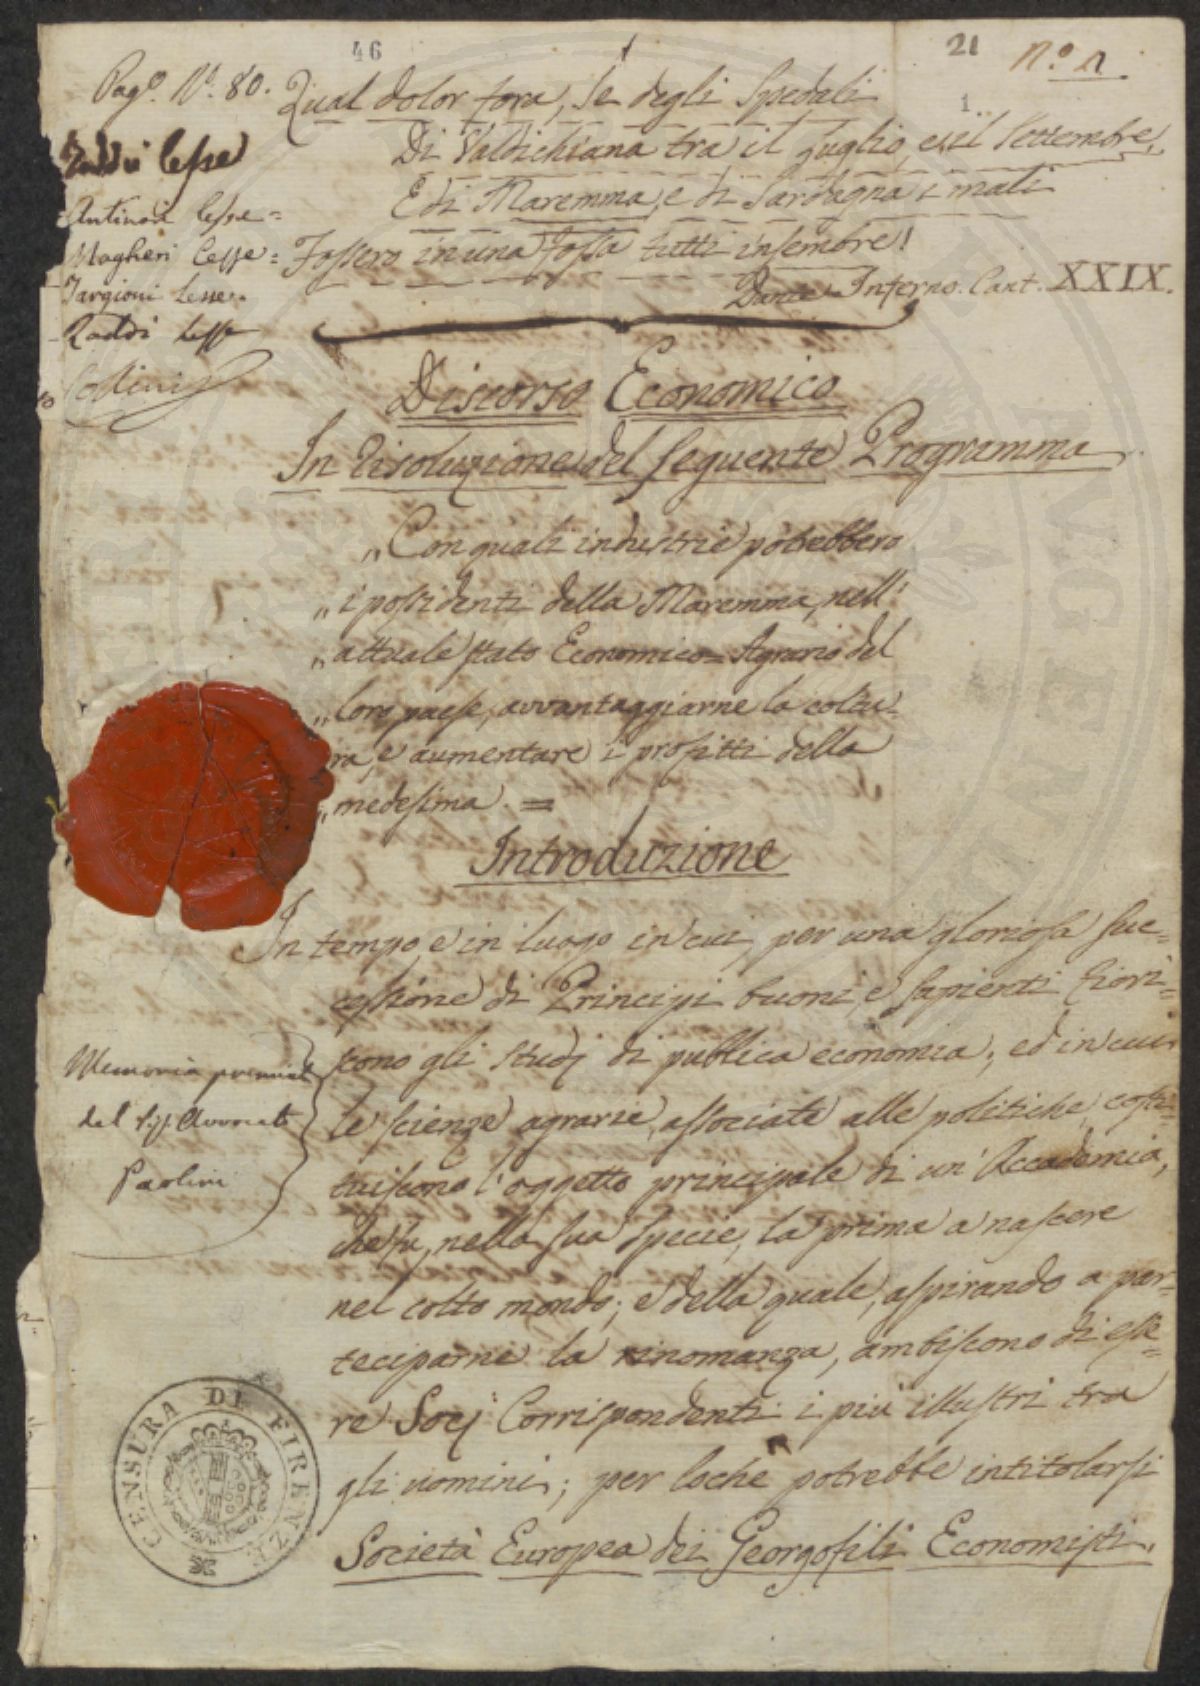 46
21
N.º 1.
1
Pag.e N.º 80.
Qual dolor fora, se degli Spedali
Di Valdichiana tra il Luglio, e il Settembre,
E di Maremma, e di Sardegna i mali
Fossero in una fossa tutti insembre!
Dante Inferno. Cant. XXIX.
Taddei lesse
Antinori lesse =
Magheri Lesse =
Targioni Lesse.
Raddi Lesse
Collini
Discorso Economico
In risoluzione del seguente Programma
„ Con quali industrie potrebbero
„ i possidenti della Maremma, nell'
„ attuale stato Economico = Agrario del
„ loro paese, avvantaggiarne la coltu-
ra, e aumentare i profitti della
„ medesima. =
Introduzione
In tempo, e in luogo in cui, per una gloriosa suc=
cessione di Principi buoni, e sapienti fiori=
scono gli studj di pubblica economia; ed in cui
le scienze agrarie, associate alle politiche, costi=
tuiscono l'oggetto principale di un' Accademia,
che fu, nella sua specie, la prima a nascere
nel colto mondo; e della quale, aspirando a par=
teciparne la rinomanza, ambiscono di esse=
re Socj Corrispondenti i più illustri tra
gli uomini; per loche potrebbe intitolarsi
Società Europea dei Georgofili Economisti.
Memoria premiata
del Sig. Avvocato
Paolini
CENSURA DI FIRENZE